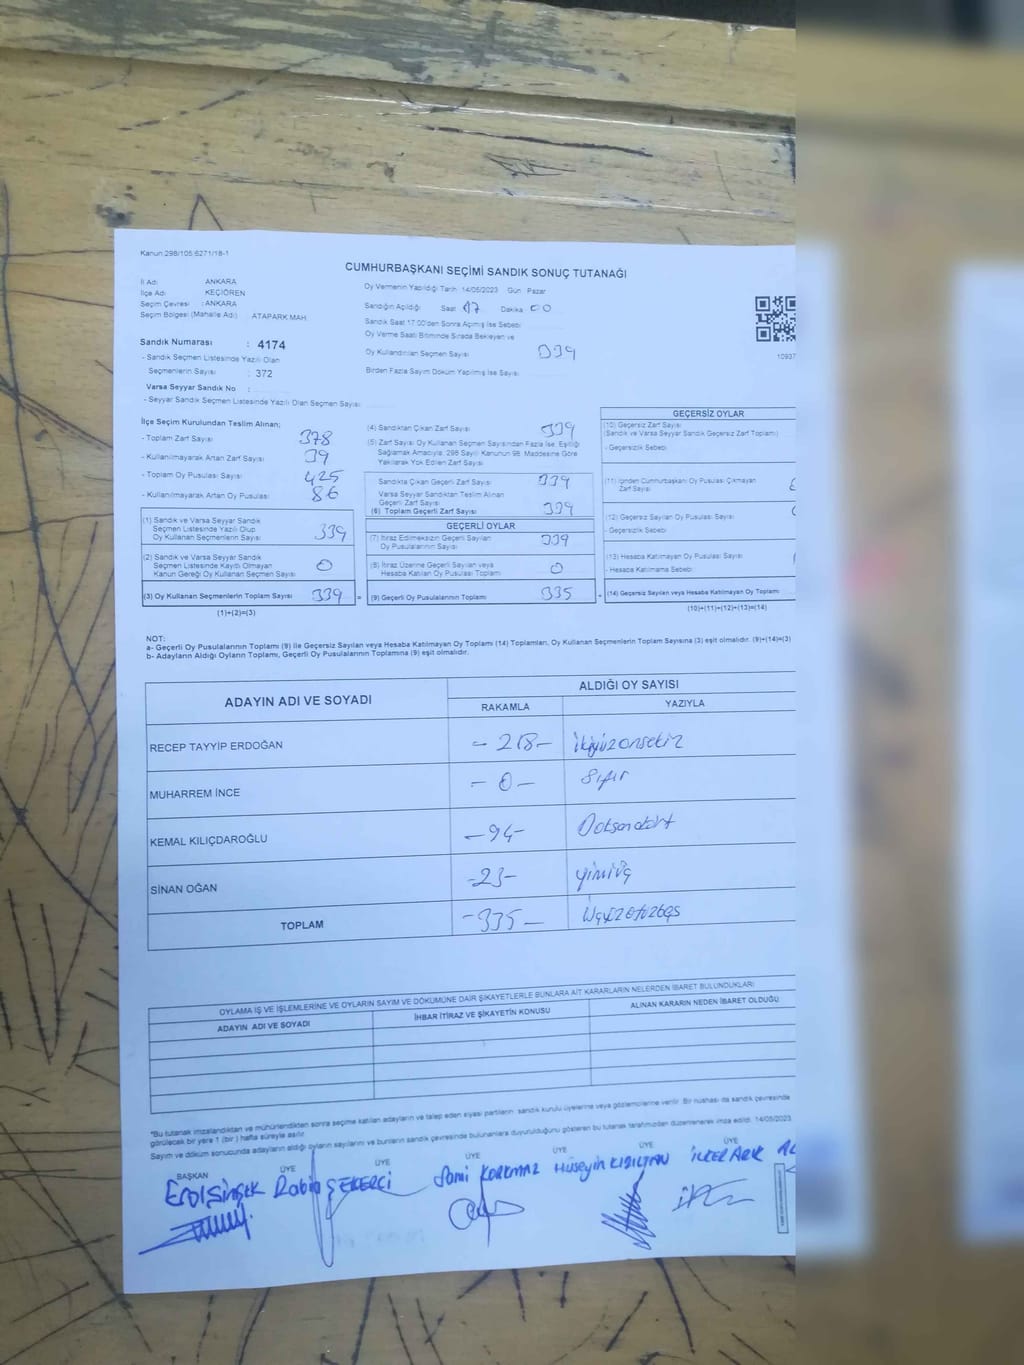 Kanun:298/105;6271/18-1
CUMHURBAŞKANI SEÇİMİ SANDIK SONUÇ TUTANAĞI
İl Adı: ANKARA
İlçe Adı: KEÇİÖREN
Seçim Çevresi : ANKARA
Seçim Bölgesi (Mahalle Adı) : ATAPARK MAH.
Oy Vermenin Yapıldığı Tarih 14/05/2023 Gün Pazar
Sandığın Açıldığı Saat 17 Dakika 00
Sandık Saat 17:00'den Sonra Açımış İse Sebebi
Oy Verme Saati Bitiminde Sırada Bekleyen ve
Oy Kullandırılan Seçmen Sayısı 339
Birden Fazla Sayım Döküm Yapılmış İse Sayısı
10937
Sandık Numarası : 4174
- Sandık Seçmen Listesinde Yazılı Olan
Seçmenlerin Sayısı : 372
Varsa Seyyar Sandık No :
- Seyyar Sandık Seçmen Listesinde Yazılı Olan Seçmen Sayısı
İlçe Seçim Kurulundan Teslim Alınan;
- Toplam Zarf Sayısı 378
- Kullanılmayarak Artan Zarf Sayısı 39
- Toplam Oy Pusulası Sayısı 425
- Kullanılmayarak Artan Oy Pusulası 86
(1) Sandık ve Varsa Seyyar Sandık
Seçmen Listesinde Yazılı Olup
Oy Kullanan Seçmenlerin Sayısı 339
(2) Sandık ve Varsa Seyyar Sandık
Seçmen Listesinde Kayıtlı Olmayan
Kanun Gereği Oy Kullanan Seçmen Sayısı 0
(3) Oy Kullanan Seçmenlerin Toplam Sayısı 339 =
(1)+(2)=(3)
(4) Sandıktan Çıkan Zarf Sayısı 339
(5) Zarf Sayısı Oy Kullanan Seçmen Sayısından Fazla İse, Eşitliği
Sağlamak Amacıyla, 298 Sayılı Kanunun 98. Maddesine Göre
Yakılarak Yok Edilen Zarf Sayısı
Sandıkta Çıkan Geçerli Zarf Sayısı 339
Varsa Seyyar Sandıktan Teslim Alınan
Geçerli Zarf Sayısı
(6) Toplam Geçerli Zarf Sayısı 339
GEÇERLİ OYLAR
(7) İtiraz Edilmeksizin Geçerli Sayılan
Oy Pusulalarının Sayısı 339
(8) İtiraz Üzerine Geçerli Sayılan veya
Hesaba Katılan Oy Pusulası Toplamı 0
(9) Geçerli Oy Pusulalarının Toplamı 335 +
GEÇERSİZ OYLAR
(10) Geçersiz Zarf Sayısı
(Sandık ve Varsa Seyyar Sandık Geçersiz Zarf Toplamı)
- Geçersizlik Sebebi
(11) İçinden Cumhurbaşkanı Oy Pusulası Çıkmayan
Zarf Sayısı
(12) Geçersiz Sayılan Oy Pusulası Sayısı
- Geçersizlik Sebebi
(13) Hesaba Katılmayan Oy Pusulası Sayısı
- Hesaba Katılmama Sebebi
(14) Geçersiz Sayılan veya Hesaba Katılmayan Oy Toplamı
(10)+(11)+(12)+(13)=(14)
NOT:
a- Geçerli Oy Pusulalarının Toplamı (9) ile Geçersiz Sayılan veya Hesaba Katılmayan Oy Toplamı (14) Toplamları, Oy Kullanan Seçmenlerin Toplam Sayısına (3) eşit olmalıdır. (9)+(14)=(3)
b- Adayların Aldığı Oyların Toplamı, Geçerli Oy Pusulalarının Toplamına (9) eşit olmalıdır.
ADAYIN ADI VE SOYADI
ALDIĞI OY SAYISI
RAKAMLA YAZIYLA
RECEP TAYYİP ERDOĞAN - 218 - ikiyüzonsekiz
MUHARREM İNCE - 0 - Sıfır
KEMAL KILIÇDAROĞLU - 94 - Doksandört
SİNAN OĞAN - 23 - yirmiüç
TOPLAM - 335 - Üçyüzotuzbeş
OYLAMA İŞ VE İŞLEMLERİNE VE OYLARIN SAYIM VE DÖKÜMÜNE DAİR ŞİKAYETLERLE BUNLARA AİT KARARLARIN NELERDEN İBARET BULUNDUKLARI
ADAYIN ADI VE SOYADI İHBAR İTİRAZ VE ŞİKAYETİN KONUSU ALINAN KARARIN NEDEN İBARET OLDUĞU
*Bu tutanak imzalandıktan ve mühürlendikten sonra seçime katılan adayların ve talep eden siyasi partilerin sandık kurulu üyelerine veya gözlemcilerine verilir. Bir nüshası da sandık çevresinde
görülecek bir yere 1 (bir) hafta süreyle asılır.
Sayım ve döküm sonucunda adayların aldığı oyların sayılarını ve bunların sandık çevresinde bulunanlara duyurulduğunu gösteren bu tutanak tarafımızdan düzenlenerek imza edildi. 14/05/2023
BAŞKAN ÜYE ÜYE ÜYE ÜYE ÜYE
Erol Şimşek Rabia ŞEKERCİ Sami KORKMAZ Hüseyin KIZILTAN İLKER ARIK